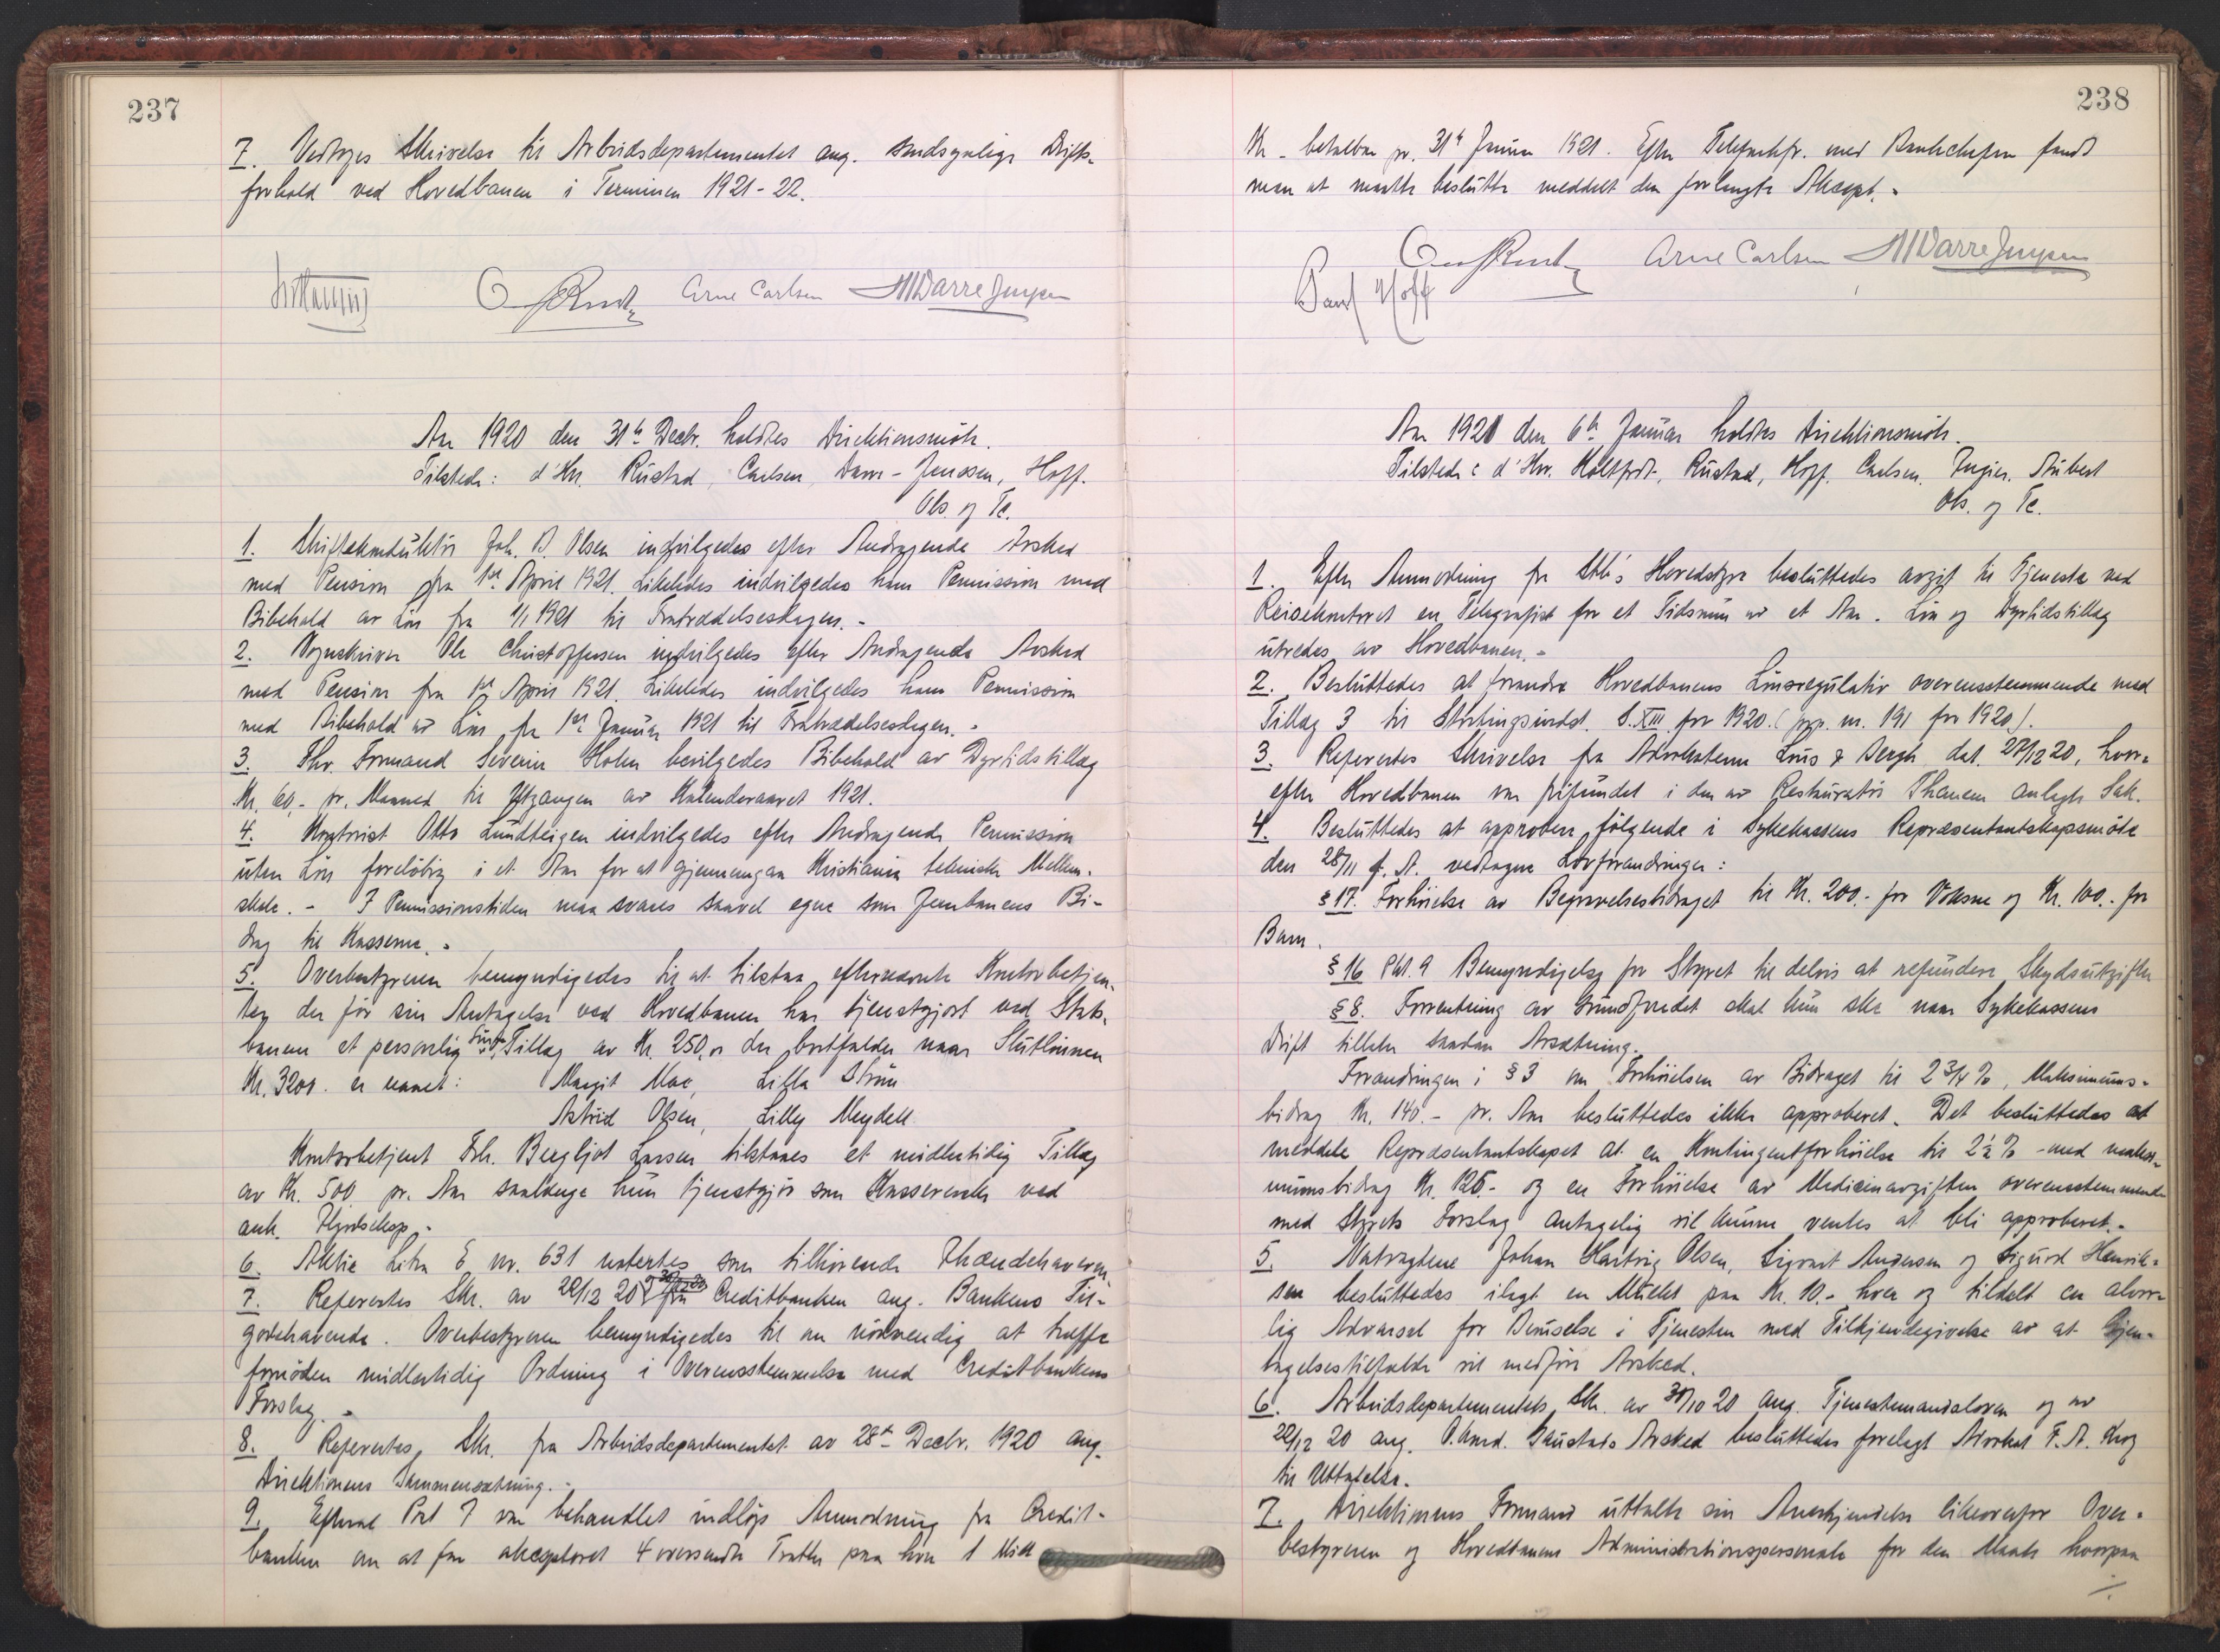 237
7. Vedtoges Skrivelse til Arbeidsdepartementet ang. sandsynlige Drifts-
forhold ved Hovedbanen i Terminen 1921-22.
Arne Carlsen M Darre Jenssen
Aar 1920 den 31te Decbr. holdtes Direktionsmöte.
Tilstede: d'Hrr. Rustad, Carlsen, Darre-Jenssen, Hoff.
Obs. og Te.
1. Skiftekonduktör Joh. B. Olsen indvilgedes efter Andragende Avsked
med Pension fra 1ste April 1921. Likeledes indvilgedes ham Permission med
Bibehold av Lön fra 1/1 1921 til Fratrædelsesdagen.-
2. Vognskriver Ole Christoffersen indvilgedes efter Andragende Avsked
med Pension fra 1ste April 1921. Likeledes indvilgedes ham Permission
med Bibehold av Lön fra 1ste Januar 1921 til Fratrædelsesdagen.-
3. Fhv. Formand Severin Holm bevilgedes Bibehold av Dyrtidstillæg
Kr. 60,- pr. Maaned til Utgangen av Kalenderaaret 1921.
4. Kontorist Otto Lundteigen indvilgedes efter Andragende Permission
uten Lön forelöbig i et Aar for at gjennemgaa Kristiania tekniske Mellem-
skole. - I Permissionstiden maa svares saavel egne som Jernbanens Bi-
drag til Kasserne.-
5. Overbestyreren bemyndigedes til at tilstaa efternævnte Kontorbetjen-
ter der för sin Antagelse ved Hovedbanen har tjenstgjort ved Stats-
banen et personlig Tillæg av Kr. 250,- der bortfalder naar Slutlönnen
Kr. 3200. er naaet: Margit Moe, Lilla Ström
Astrid Olsen, Lilly Meydell.
Kontorbetjent Frk. Bergljot Larsen tilstaaes et midlertidig Tillæg
av Kr. 500 pr. Aar saalænge hun tjenstgjör som Kassererske ved
ank. Ilgodseksp.-
6. Aktie Litra E nr. 631 noteres som tilhörende Ihændehaveren.
7. Refereres Skr. av 22/12 20 fra Creditbanken ang. Bankens Til-
godehavende. Overbestyreren bemyndigedes til om nödvendig at træffe
fornöden midlertidig Ordning i Overensstemmelse med Creditbankens
Forslag.-
8. Refereres Skr. fra Arbeidsdepartementet av 28de Decbr. 1920 ang.
Direktionens Sammensætning.-
9. Efterat Post 7 var behandlet indlöp Anmodning fra Credit-
banken om at faa akcepteret 4 oversendte Tratter paa hver 1 Mill
238
Kr. betalbar pr. 31te Januar 1921. Efter Telefonkfr. med Bankchefen fandt
man at maatte beslutte meddelt den forlangte Akcept.-
Arne Carlsen M Darre Jenssen
Paul Hoff
Aar 1921 den 6te Januar holdtes Direktionsmöte.
Tilstede: d'Hrr. Holtfodt, Rustad, Hoff, Carlsen, Ingier, Aubert
Obs. og Te.
1. Efter Anmodning fra Stb's Hovedstyre besluttedes avgit til Tjeneste ved
Reisekontoret en Telegrafist for et Tidsrum av et Aar. Lön og Dyrtidstillæg
utredes av Hovedbanen.-
2. Besluttedes at forandre Hovedbanens Lönsregulativ overensstemmende med
Tillæg 3 til Stortingsindst. S. XIII for 1920. ( nr. 191 for 1920).
3. Refereres Skrivelse fra Advokaterne Lous & Bergh dat. 27/12 20, hvor-
efter Hovedbanen var frifundet i den av Restauratör Thanem anlagte Sak.
4. Besluttedes at approbere følgende i Sykekassens Repræsentantskapsmöte
den 28/11 f. A. vedtagne Lovforandringer:
§ 17. Forhöielse av Begravelsesbidraget til Kr. 200.- for Voksne og Kr. 100.- for
Barn.
§ 16 Pkt. 9 Bemyndigelse for Styret til delvis at refundere Skydsutgifter
§ 8. Forrentning av Grundfondet skal kun ske naar Sykekassens
Drift tillater saadan Avsætning.
Forandringen i § 3 om Forhöielsen av Bidraget til 2 3/4 %, Maksimums-
bidrag Kr. 140.- pr. Aar besluttedes ikke approberet. Det besluttedes at
meddele Repræsentantskapet at en Kontingentforhöielse til 2 1/2 % - med maksi-
mumsbidrag Kr. 126.- og en Forhöielse av Medicinavgiften overensstemmende
med Styrets Forslag antagelig vil kunne ventes at bli approberet.-
5. Natvagtene Johan Hartvig Olsen, Sigvart Andersen og Sigurd Henrik-
sen besluttedes ilagt en Mulkt paa Kr. 10.- hver og tildelt en alvor-
lig Advarsel for Beruselse i Tjenesten med Tilkjendegivelse av at Gjen-
tagelsestilfælde vil medföre Avsked.
6. Arbeidsdepartementets Skr. av 30/10 20 ang. Tjenestemandsloven og av
22/12 20 ang. Gaustads Avsked besluttedes forelagt Advokat F. A. Krog
til Uttalelse.
7. Direktionens Formand uttalte sin Anerkjendelse likeoverfor Over-
bestyreren og Hovedbanens Administrationspersonale for den Maate hvorpaa